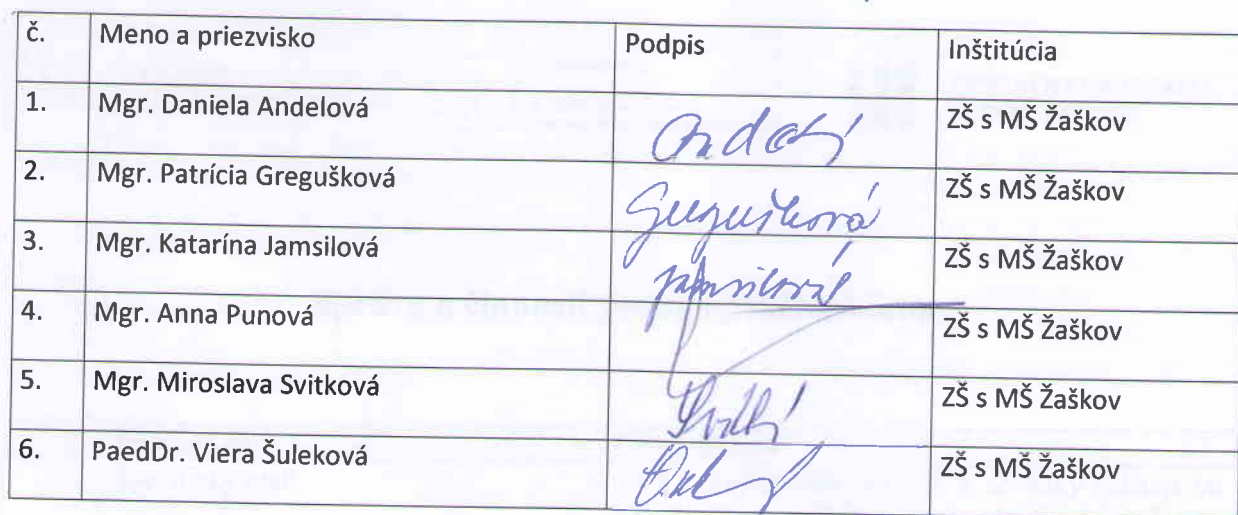 č. Meno a priezvisko Podpis Inštitúcia
1. Mgr. Daniela Andelová ZŠ s MŠ Žaškov
2. Mgr. Patrícia Gregušková Gregušková ZŠ s MŠ Žaškov
3. Mgr. Katarína Jamsilová Jamsilová ZŠ s MŠ Žaškov
4. Mgr. Anna Punová ZŠ s MŠ Žaškov
5. Mgr. Miroslava Svitková ZŠ s MŠ Žaškov
6. PaedDr. Viera Šuleková ZŠ s MŠ Žaškov